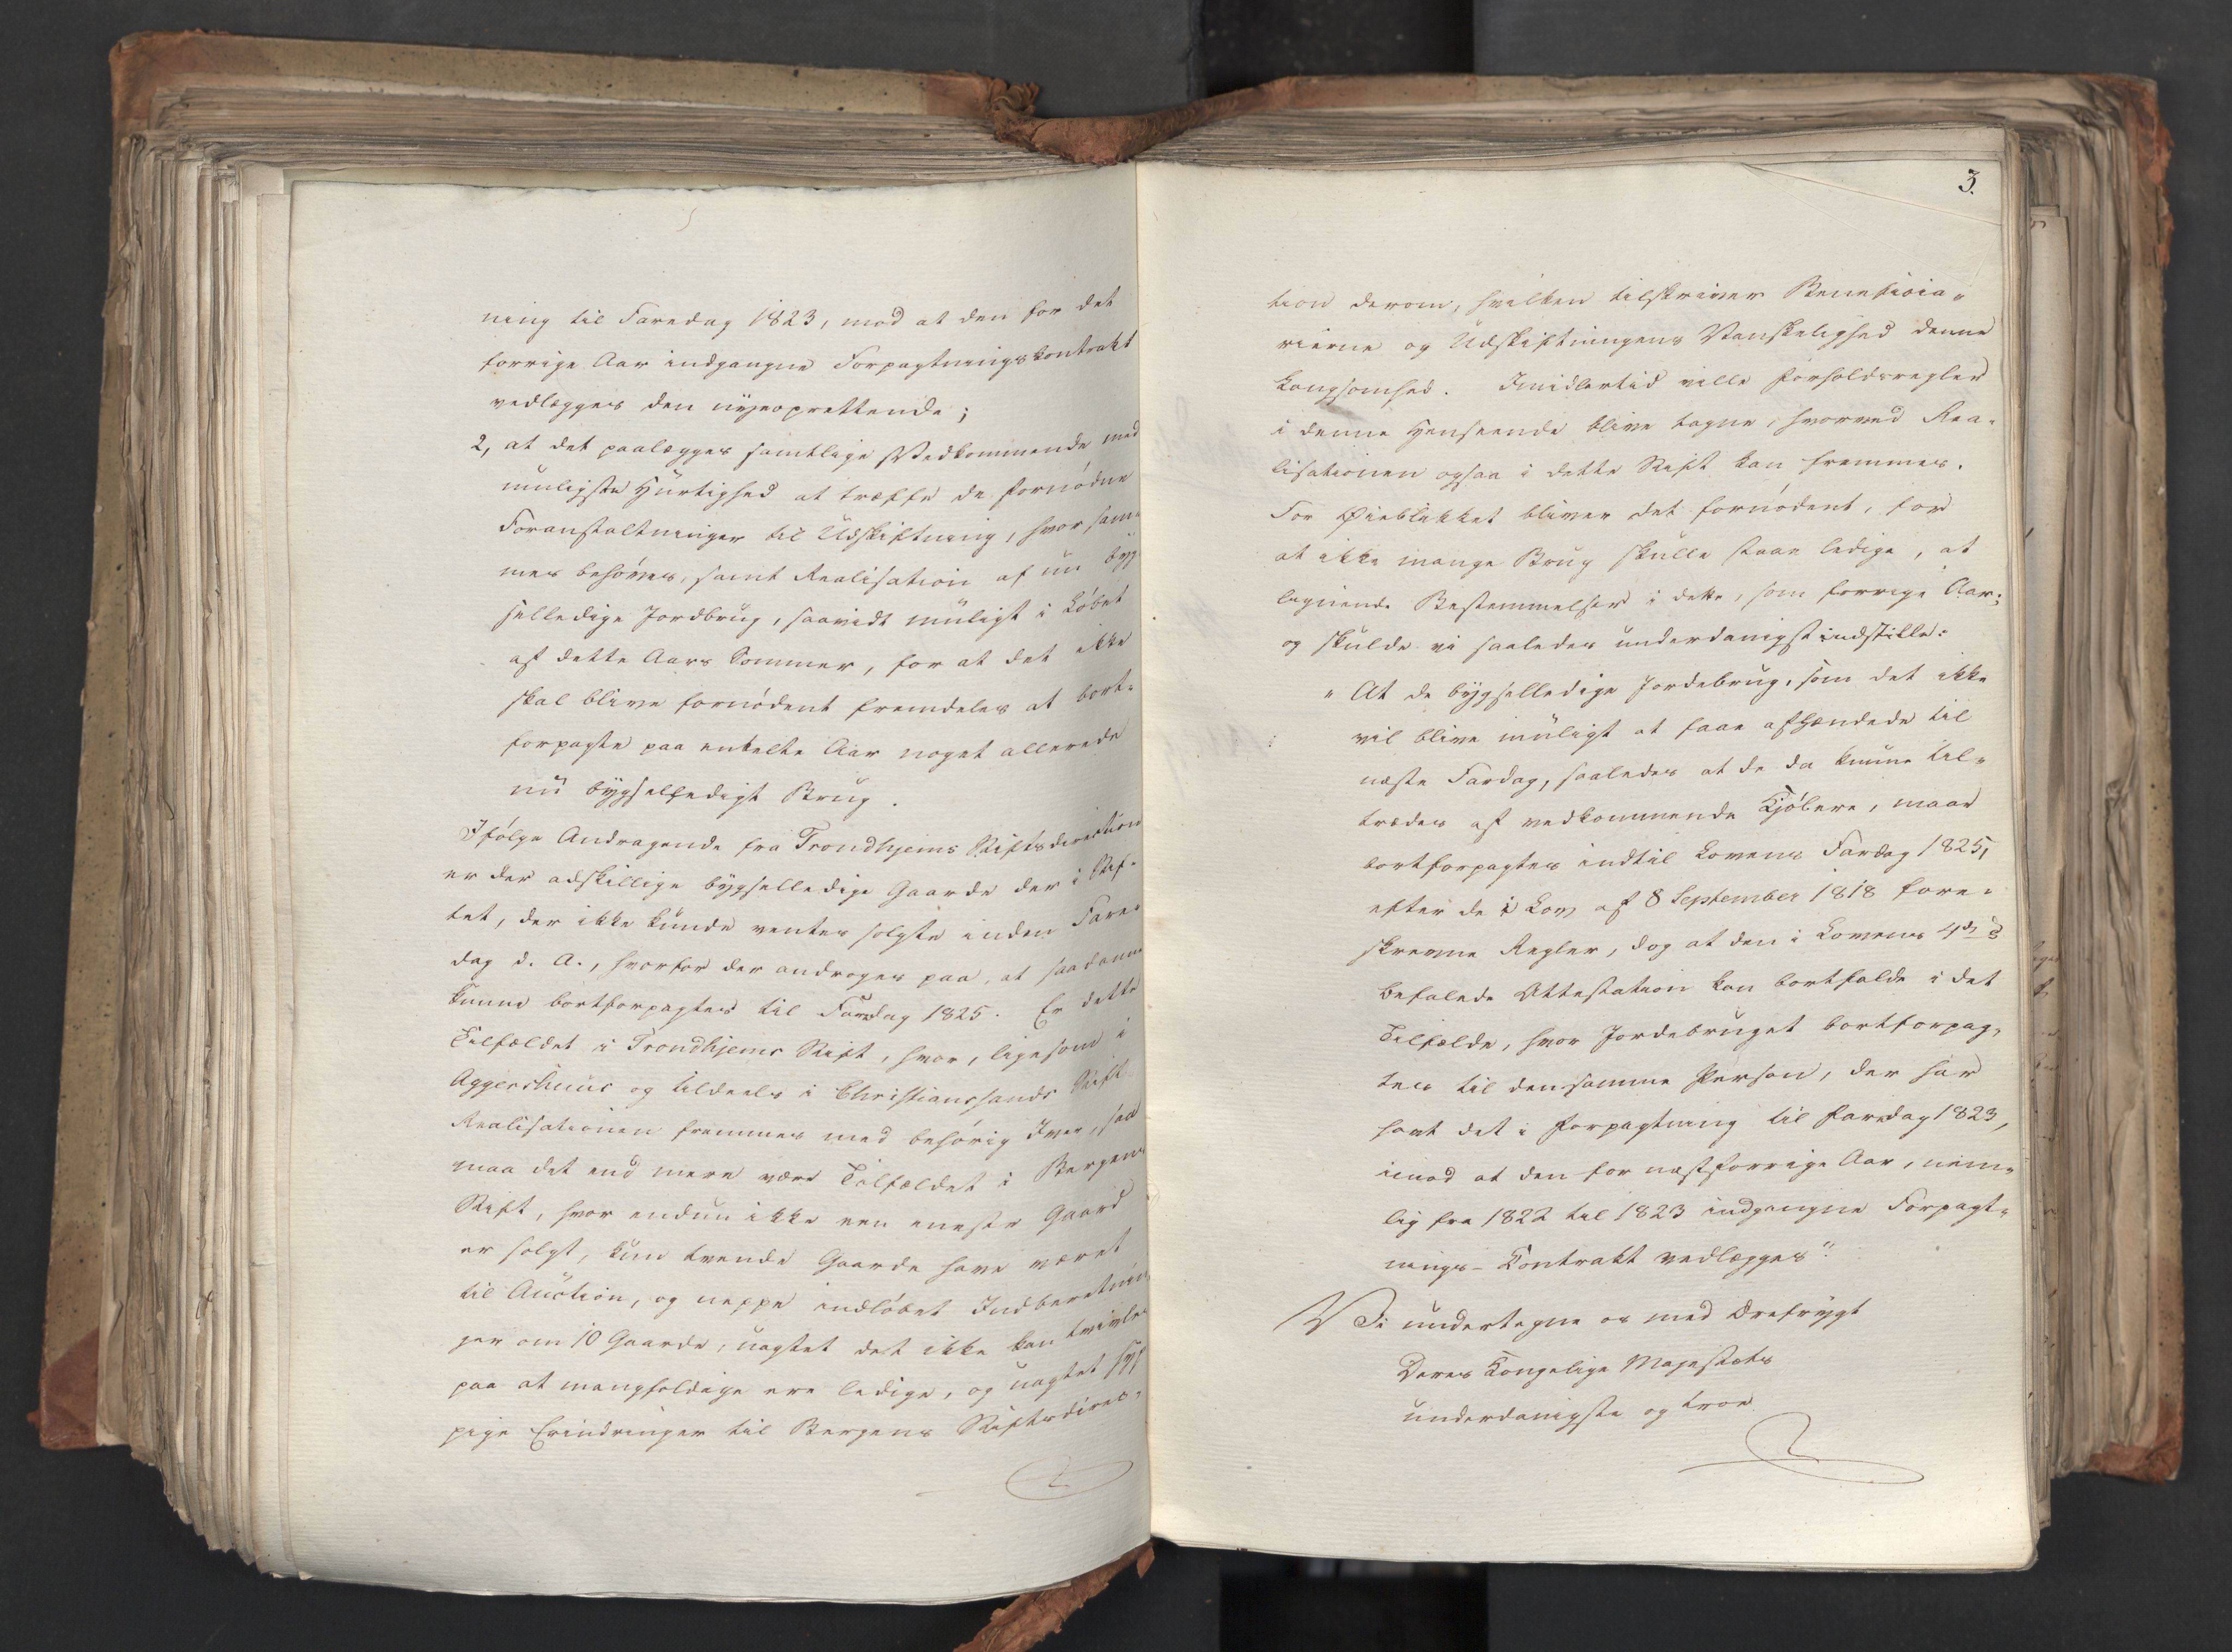 ning til Faredag 1823, mod at den for det
forrige Aar indgangne Forpagtningskontrakt
vedlægges den nyeoprettende;
2, at det paalægges samtlige Vedkommende med
muligste Hurtighed at træffe de fornødne
Foranstaltninger til Udskiftning, hvor sam-
mes behøves, samt Realisation af nu byg
selledige Jordbrug, saavidt muligt i Løbet
af dette Aars Sommer, for at det ikke
skal blive fornødent fremdeles at bort-
forpagte paa enkelte Aar noget allerede
nu bygselledigt Brug.
Ifølge Andragende fra Trondhjems Stiftsdirection
er der adskillige bygselledige Gaarde der i Stif-
tet, der ikke kunde ventes solgte inden Fare-
dag d. A., hvorfor der androges paa, at saadanne
kunne bortforpagtes til Faredag 1825. Er dette
Tilfældet i Trondhjems Stift, hvor, ligesom i
Aggershuus og tildeels i Christianssands Stift
Realisationen fremmes med behørig Iver, saa
maa det end mere være Tilfældet i Bergens
Stift, hvor endnu ikke een eneste Gaard
er solgt, kun tvende Gaarde have været
til Auction, og neppe indløbet Indberetnin
ger om 10 Gaarde, uagtet det ikke kan tvivles
paa at mangfoldige ere ledige, og uagtet hyp
pige Erindringer til Bergens Stiftsdirec-
3.
tion derom, hvilken tilskriver Beneficia-
rierne og Udskiftningens Vanskelighed denne
Langsomhed. Imidlertid ville Forholdsregler
i denne Henseende blive tagne, hvorved Rea-
lisationen ogsaa i dette Stift kan fremmes.
For Øieblikket bliver det fornødent, for
at ikke mange Brug skulle staae ledige, at
lignende Bestemmelser i dette, som forrige Aar;
og skulde vi saaledes underdanigst indstille:
" At de bygselledige Jordebrug, som det ikke
vil blive muligt at faae afhændede til
næste Fardag, saaledes at de da kunne til-
trædes af vedkommende Kjøbere, maae
bortforpagtes indtil Lovens Fardag 1825,
efter de i Lov af 8 September 1818 fore-
skrevne Regler, dog at den i Lovens 4de §
befalede Attestation kan bortfalde i det
Tilfælde, hvor Jordebruget bortforpag-
tes til den samme Person, der har
havt det i Forpagtning til Faredag 1823,
imod at den for næstforrige Aar, nem-
lig fra 1822 til 1823 indgangne Forpagt-
nings-Kontrakt vedlægges".
Vi undertegne os med Ærefrygt
Deres Kongelige Majestæts
underdanigste og troe